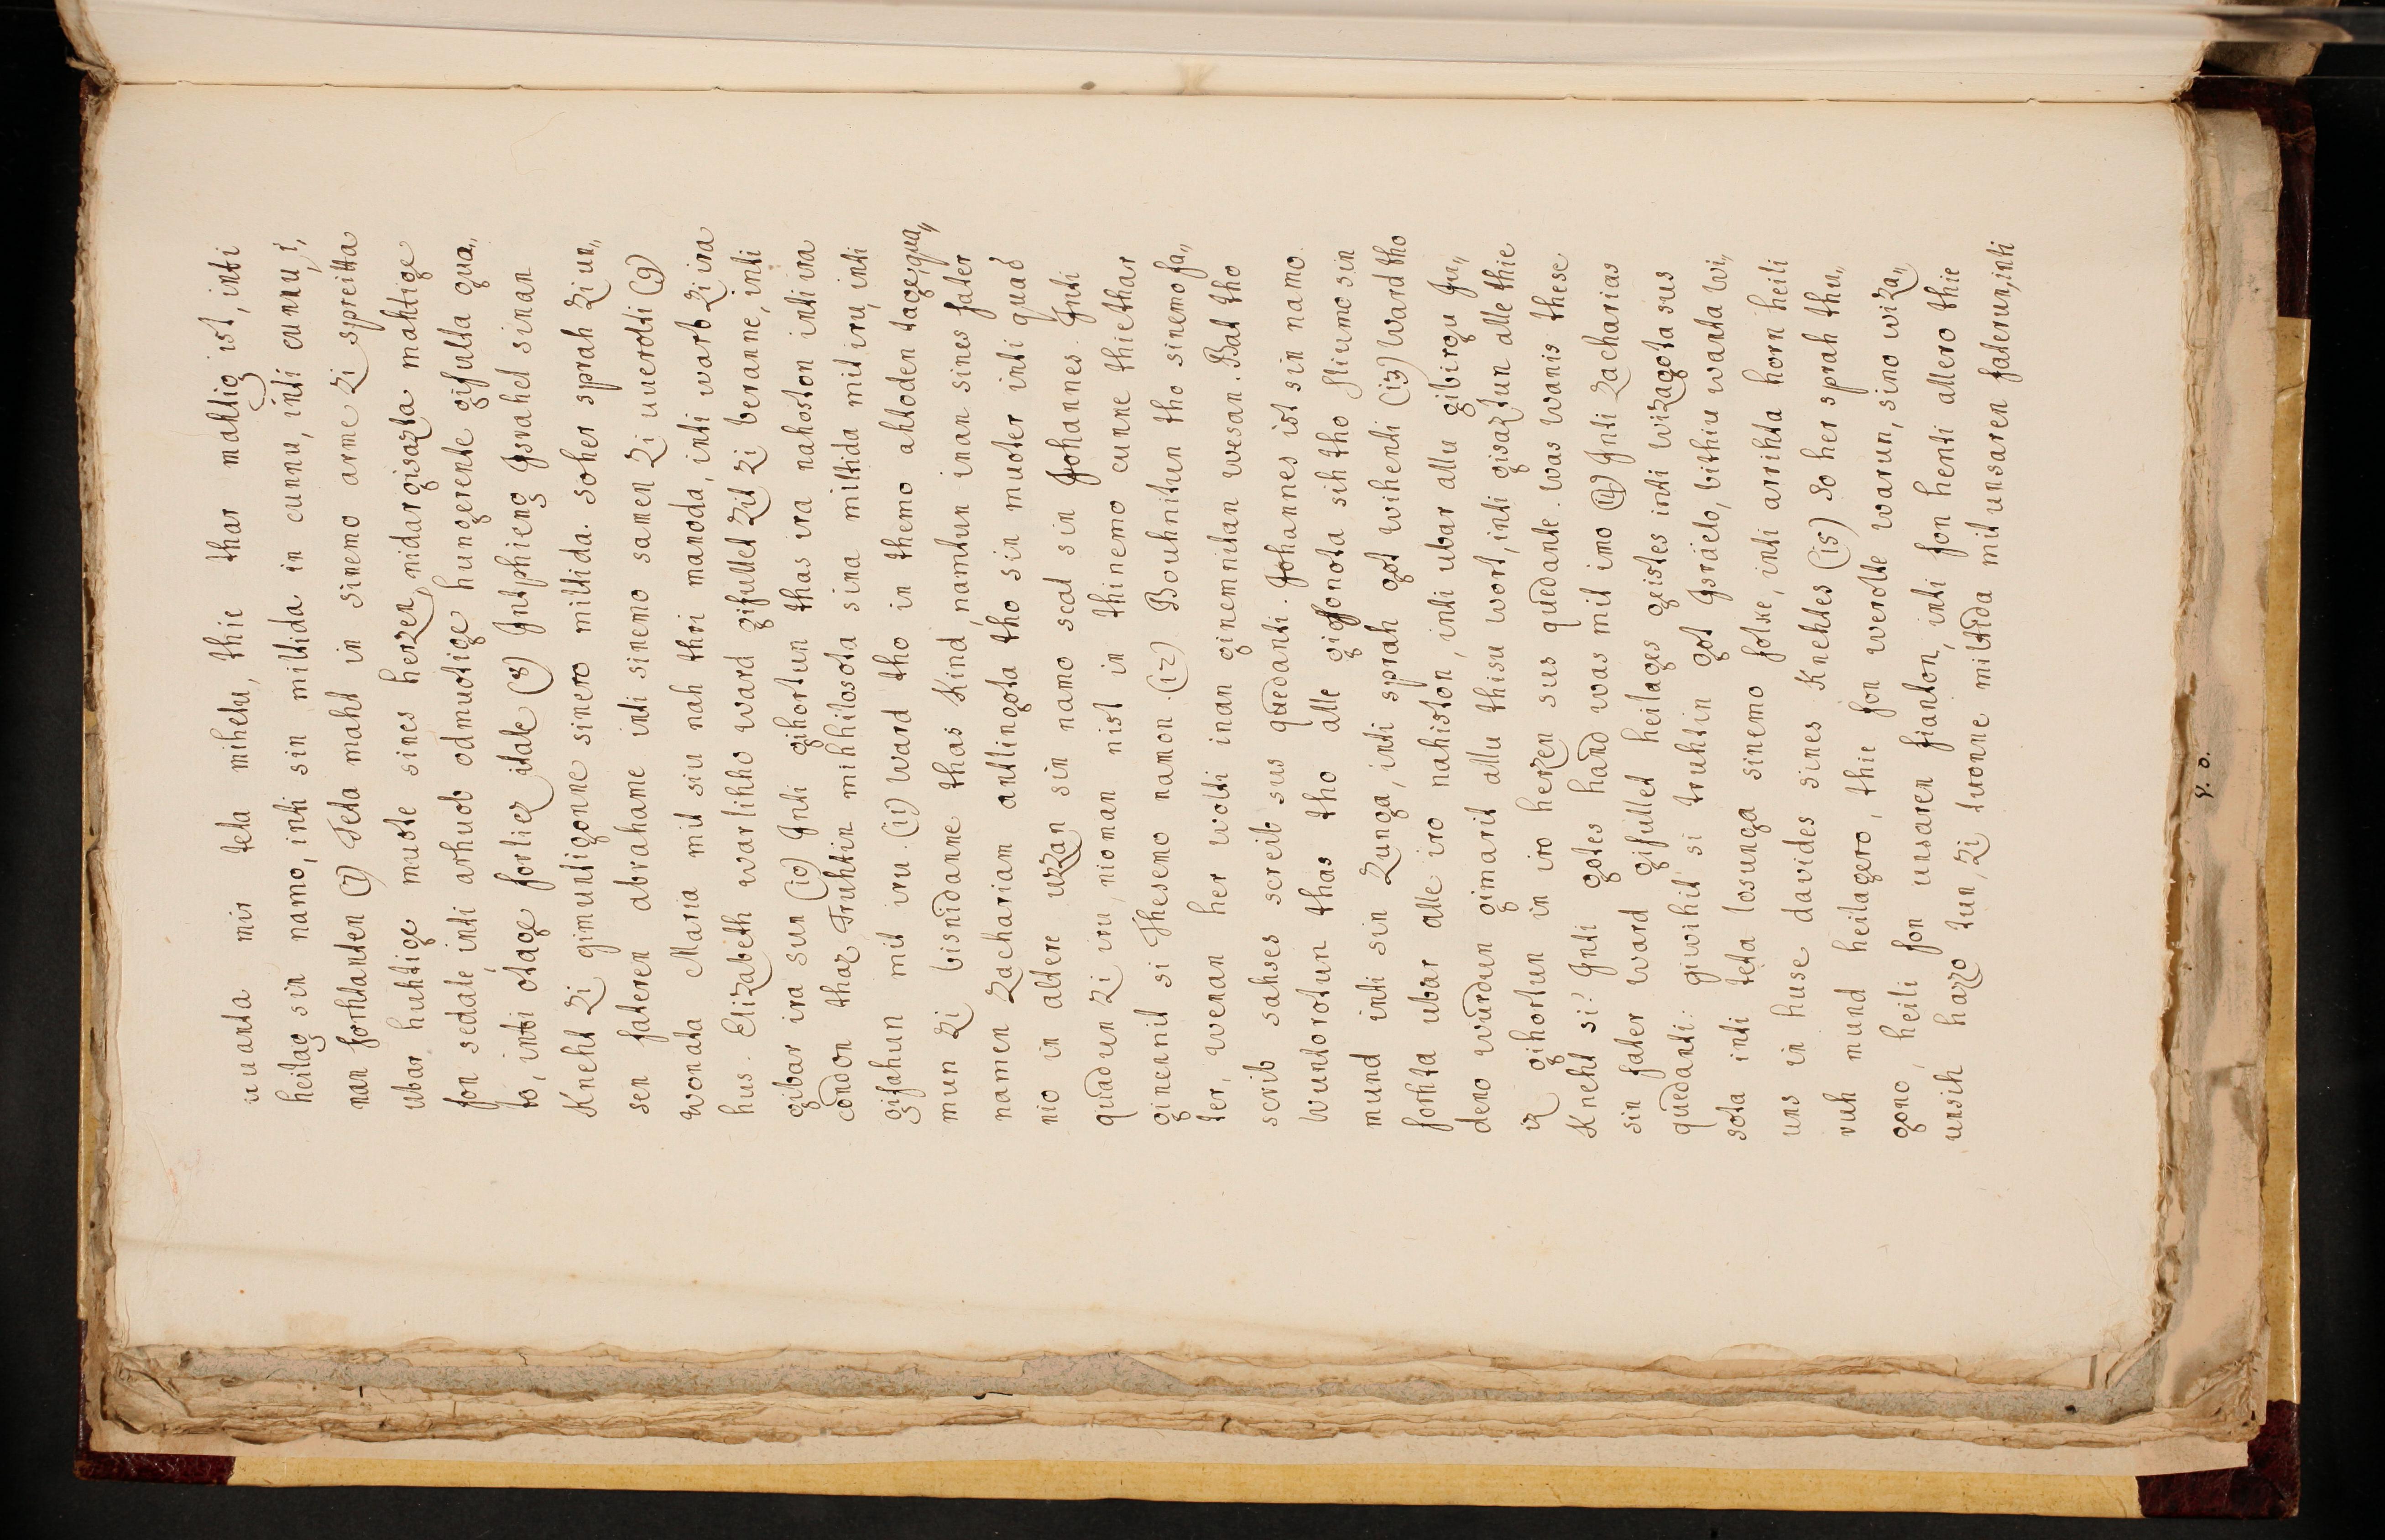 uuanta mir teta mihelu, thie thar mahtig ist, inti
heilag sin namo, inti sin miltida in cunnu, inti cunnu, i,,
nan forhtanten (7) Teta maht in sinemo arme zi spreitta
ubar huhtige muote sines herzen, nidar gisazta mahtige
fon sedale, inti arhuob odmuotige hungerente gifulta gua,,
to, inti otage forliez itale (8) Intphieng Israhel sinan
Kneht zi gimuntigonne sinero miltida. soher sprah zi un,,
sen fateren abrahame inti sinemo samen zi uuerolti (9)
Wonata Maria mit siu nah thri manoda, inti warb zi ira
hus. Elizabeth warlihho ward gifullet zit zi beranne, inti
gibar ira sun (10) Inti gihortun thas ira nahoston inti ira
condon thaz Truhtin mihhilosota sina miltida mit iru, inti
gifahun mit iru. (11) Ward tho in themo ahtoden tage, qua,,
mun zi bisnidanne thas Kind, namtun inan sines fater
namen Zachariam antlingota tho sin muoter inti quad
nio in altere uzzan sin namo scal sin Johannes. Inti
quadun zi iru, nioman nist in thinemo cunne thiethar
ginennit si Thesemo namon. (12) Bouhnitun tho sinemo fa,,
ter, wenan her wolti inan ginemnitan wesan. Bat tho
scrib sahses screib sus quedanti. Johannes ist sin namo.
Wuntorotun thas tho alle gigonota sih tho sliumo sin
mund inti sin Zunga, inti sprah got wihenti (13) Ward tho
forhta ubar alle iro nahiston, inti ubar allu gibirgu Ju,,
deno wurdun gimarit allu thisu wort, inti gisaztun alle thie
iz gihortun in iro herzen sus quedante. was wanis these
Kneht si? Inti gotes hand was mit imo (14) Inti Zacharias
sin fater ward gifullet heilages geistes inti wizagota sus
quedanti: giwihit si truhtin got Israelo, bithiu wanta wi,,
sota inti teta losunga sinemo folke, inti arrihta horn heili
uns in huse davides sines Knehtes (15) So her sprah thu,,
ruh mund heilagero, thie fon werolte warun, sino wiza,,
gono, heili fon unsaren fianton, inti fon henti allero thie
unsih hazo tun, zi tuonne miltida mit unsaren faterun, inti